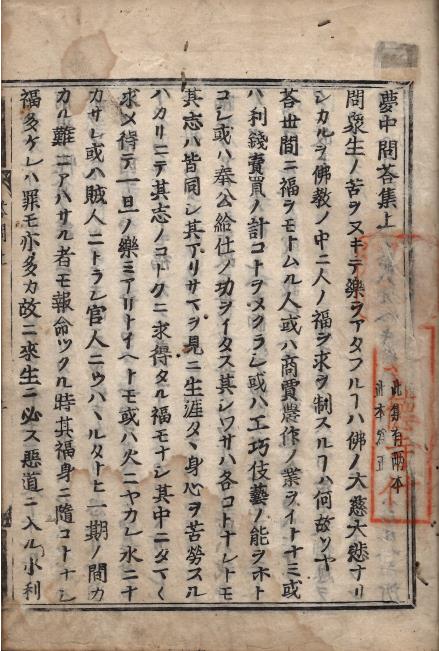 夢中問荅集上
此集有兩本
此本為正
問衆生ノ苦ヲヌキテ樂ヲアタフルヿハ佛ノ大慈大悲ナリ
シカルヲ佛教ノ中ニ人ノ福ヲ求ヲ制スルヿハ何故ソヤ
荅世間ニ福ヲモトムル人或ハ商賈農作ノ業ヲイトナミ或
ハ利錢賣買ノ計コトヲメクラシ或ハ工巧伎藝ノ能ヲホト
コシ或ハ奉公給仕ノ功ヲイタス其シワサハ各コトナレトモ
其志ハ皆同シ其アリサマヲ見ニ生涯タヽ身心ヲ苦勞スル
ハカリニテ其志ノコトクニ求得タル福モナシ其中ニタマ〱
求メ得テ一旦ノ樂ミアリトイヘトモ或ハ火ニヤカレ水ニナ
カサレ或ハ賊人ニトラレ官人ニウハヽルタトヒ一期ノ間カ
カル難ニアハサル者モ報命ツクル時其福身ニ隨コトナシ
福多ケレハ罪モ亦多カ故ニ來生ニ必ス惡道ニ入ル小利